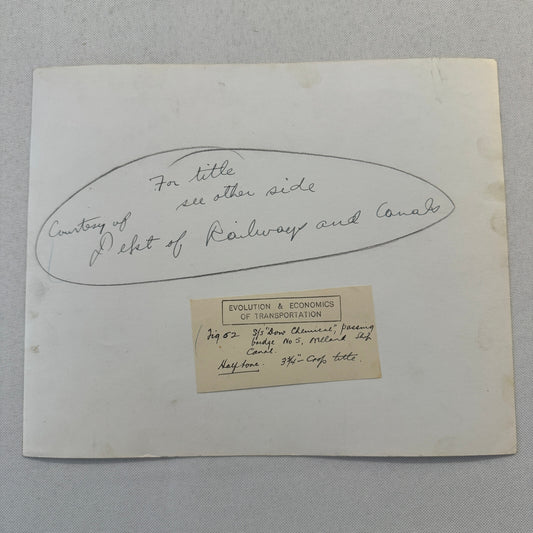 For title
see other side
Courtesy of
Dept of Railways and Canals
EVOLUTION & ECONOMICS
OF TRANSPORTATION
Fig 52 S/S "Dow Chemical", passing
bridge No 5, Welland Ship
Canal.
Halftone. 3¾" - Crop title.